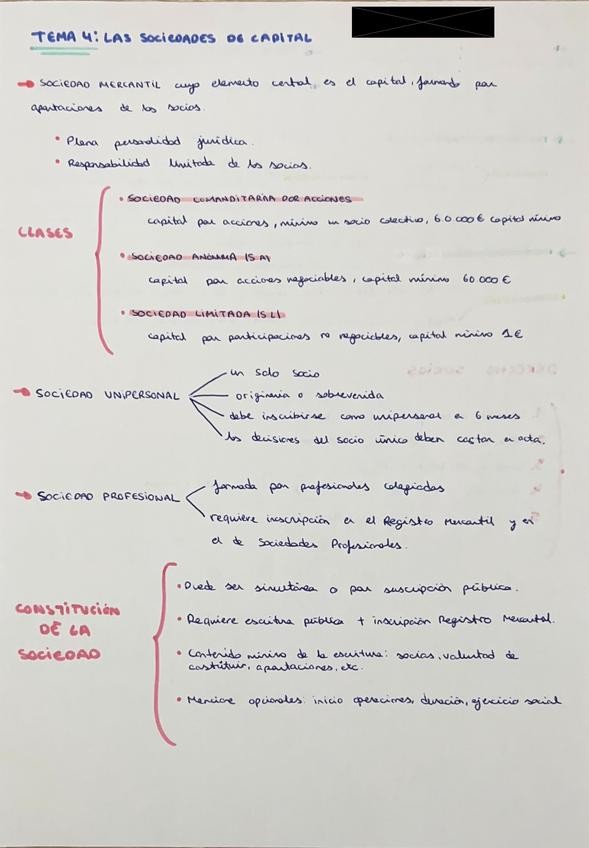 TEMA 4: LAS SOCIEDADES DE CAPITAL
→ SOCIEDAD MERCANTIL cuyo elemento central es el capital, formado por
aportaciones de los socios.
• Plena personalidad jurídica.
• Responsabilidad limitada de los socios.
CLASES
• SOCIEDAD COMANDITARIA POR ACCIONES
capital por acciones, mínimo un socio colectivo, 60.000€ capital mínimo
• SOCIEDAD ANÓNIMA (SA)
capital por acciones negociables, capital mínimo 60.000€
• SOCIEDAD LIMITADA (SL)
capital por participaciones no negociables, capital mínimo 1€
→ SOCIEDAD UNIPERSONAL
un solo socio
originaria o sobrevenida
debe inscribirse como unipersonal en 6 meses
las decisiones del socio único deben constar en acta.
→ SOCIEDAD PROFESIONAL
formada por profesionales colegiados
requiere inscripción en el Registro Mercantil y en
el de Sociedades Profesionales.
CONSTITUCIÓN
DE LA
SOCIEDAD
• Puede ser simultánea o por suscripción pública.
• Requiere escritura pública + inscripción Registro Mercantil.
• Contenido mínimo de la escritura: socios, voluntad de
constituir, aportaciones, etc.
• Menciones opcionales: inicio operaciones, duración, ejercicio social